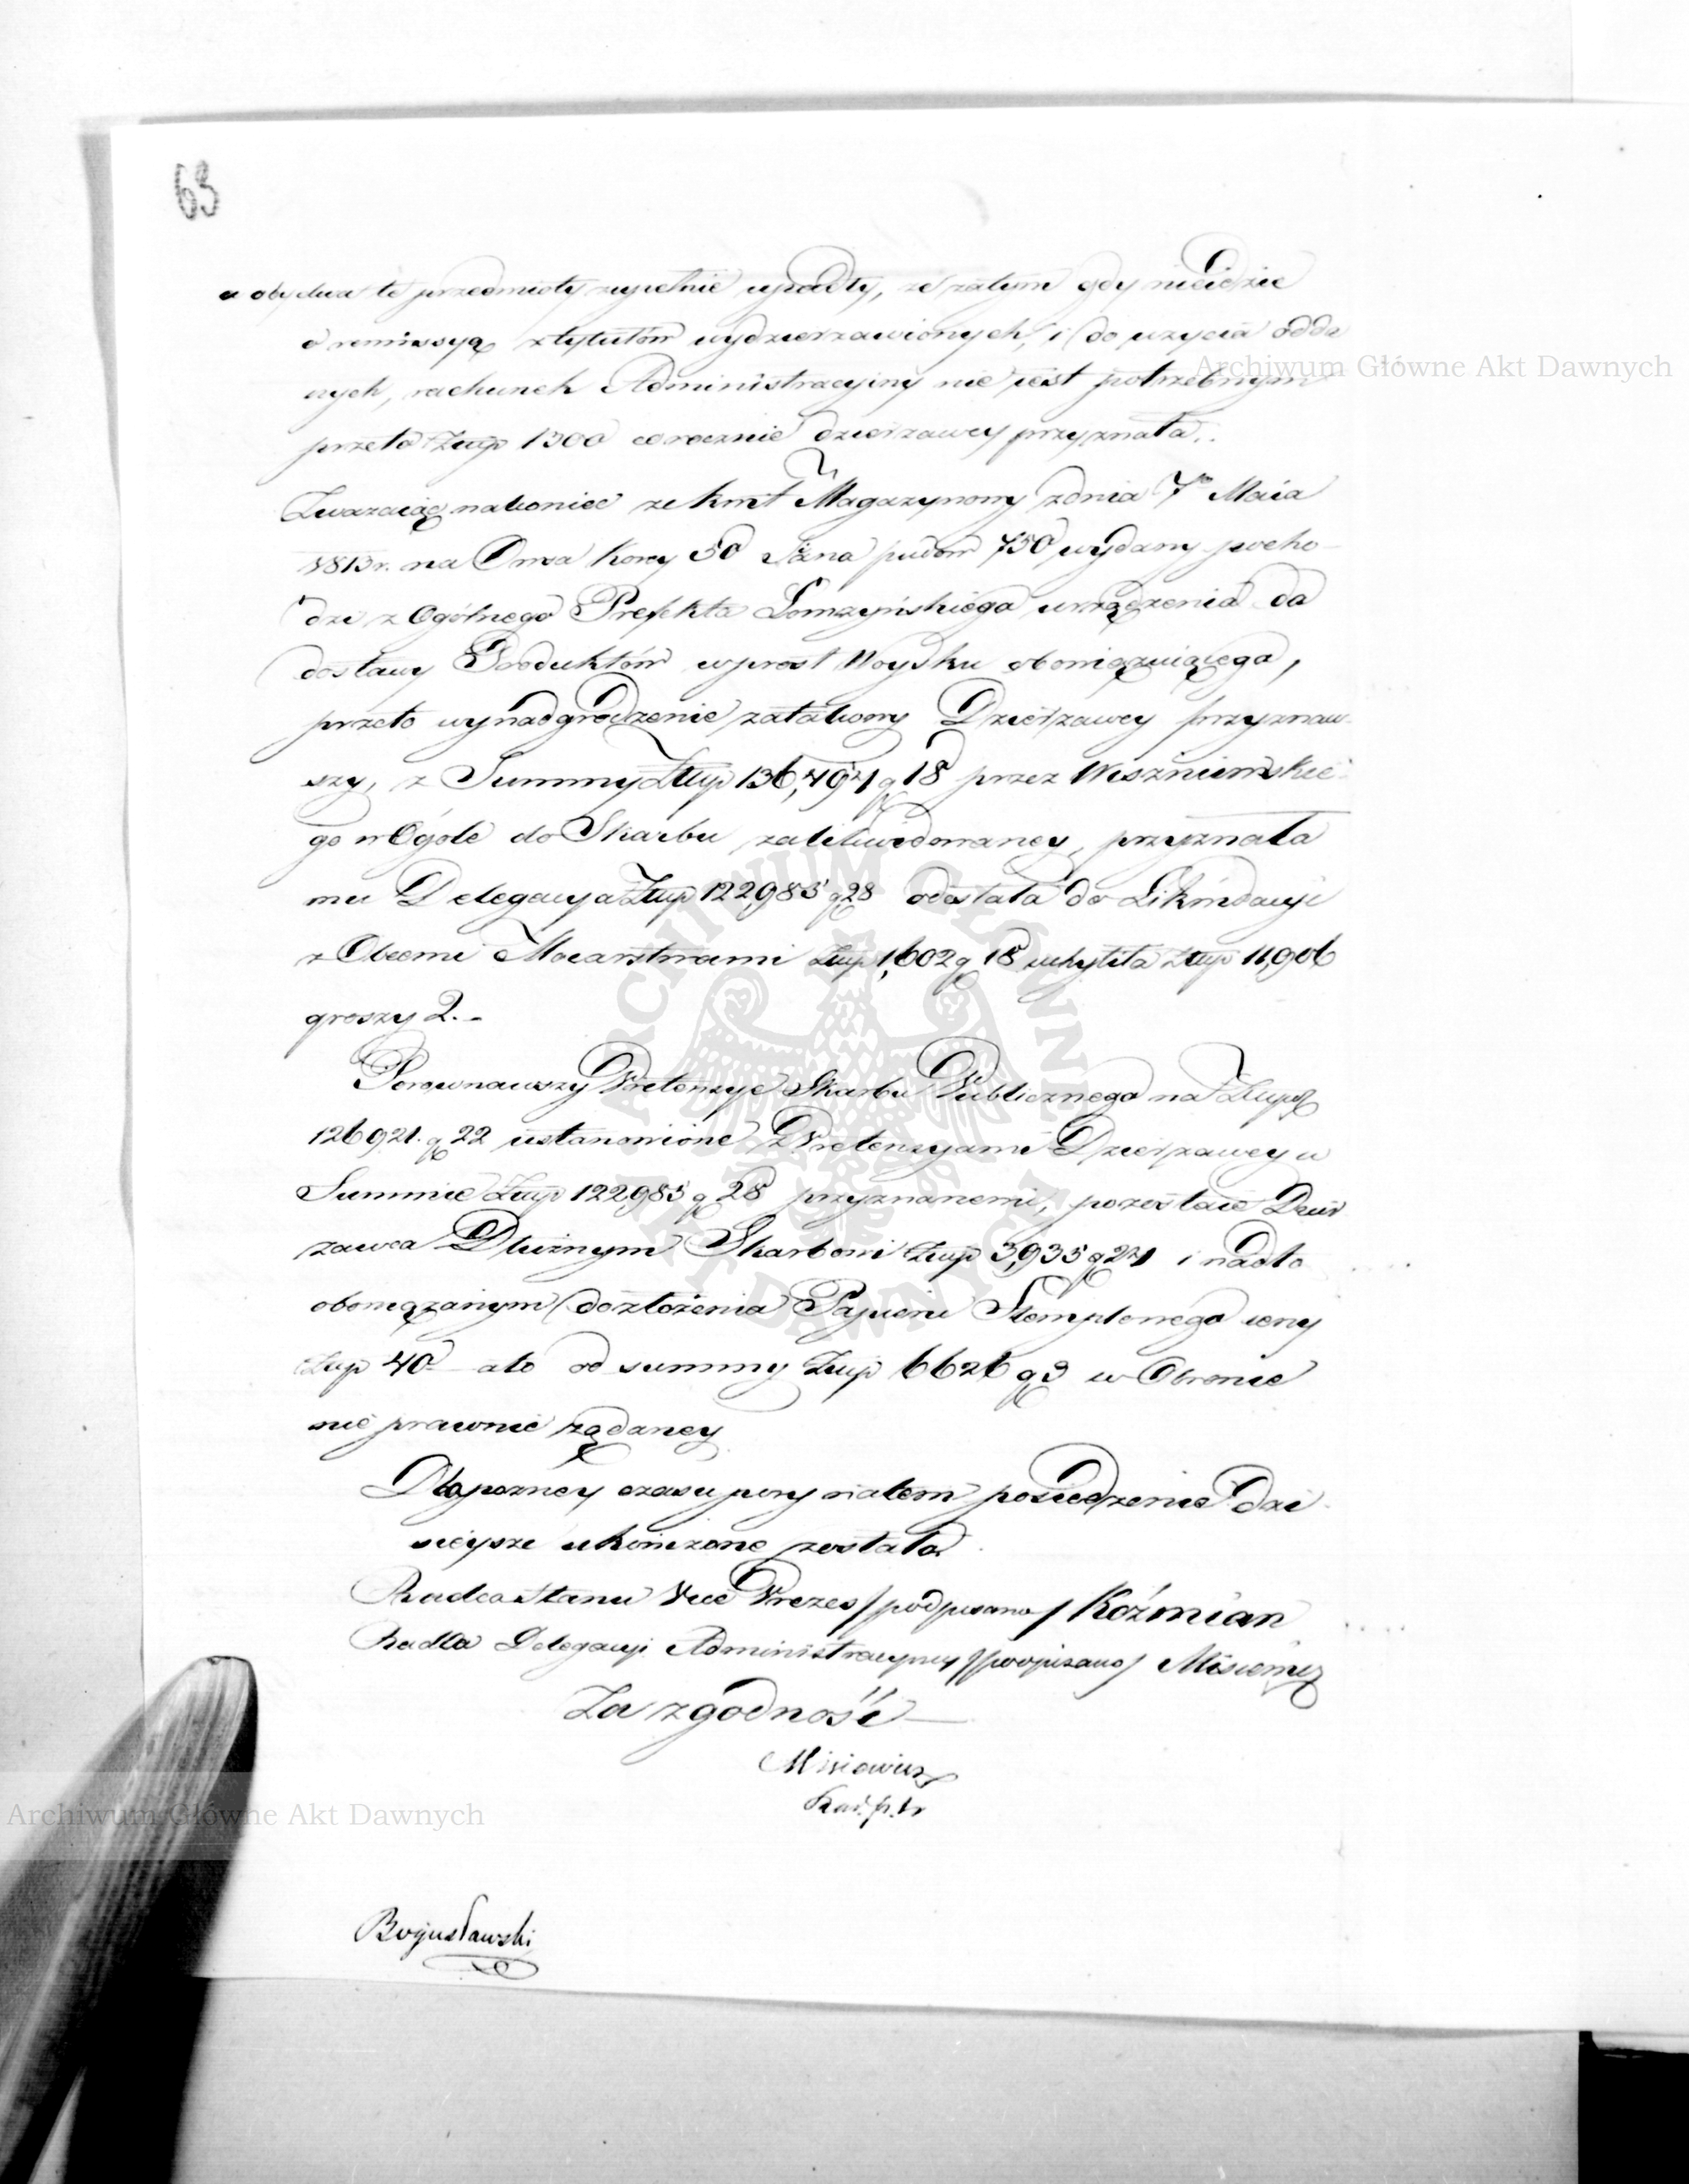 63
a obydwa te przedmioty zupełnie upadły, że zatem gdy nieidzie
o remissyą z tytułów wydzierzawionych, i do uzycia odda
nych, rachunek Administracyiny nie iest potrzebnym
przeto Złłp 1300 corocznie dzierzawcy przyznała.
Zwazaiąc nakoniec ze kwit Magazynowy z dnia 7go Maia
1813 r. na Owsa Korcy 50 Siana pudów 750 wydany pocho-
dzi z Ogólnego Prefekta Łomzyńskiego urządzenia do
dostawy Produktów wprost Woysku obowiązuiącego,
przeto wynadgrodzenie zatakowy Dzierzawcy przyznaw-
szy, z Summy Złłp 136,494 g 18 przez Wiszniewskie-
go w Ogóle do Skarbu zalikwidowaney, przyznała
mu Delegacya Złłp 122,985 g 28 odesłała do Likwidacyi
z Obcemi Mocarstwami Złłp 1,602 g 18 uchyliła Złłp 11,906
groszy 2.-
Porownawszy Pretensye Skarbu Publicznego na Złłp
126921. g 22 ustanowione z Pretensyami Dzierzawcy w
Summie Złłp 122,985 g 28 przyznanemi, pozostaie Dzier
zawca Dłuznym Skarbowi Złłp 3,935 g 24 i nadto
obowiązanym do złożenia Papieru Stemplowego ceny
Złłp 40 – a to od summy Złłp 6626 g 3 w Obronie
nie prawnie żądaney
Dla pozney czasu pory na tem posiedzenie dzi-
sieysze ukończone zostało.
Radca Stanu Vice Prezes /podpisano/ Koźmian
Radca Delegacyi Administracyiney /podpisano/ Misiewicz
Za zgodność –
Misiewicz
Bogusławski
Archiwum Główne Akt Dawnych
Archiwum Główne Akt Dawnych
ARCHIWUM GŁÓWNE AKT DAWNYCH